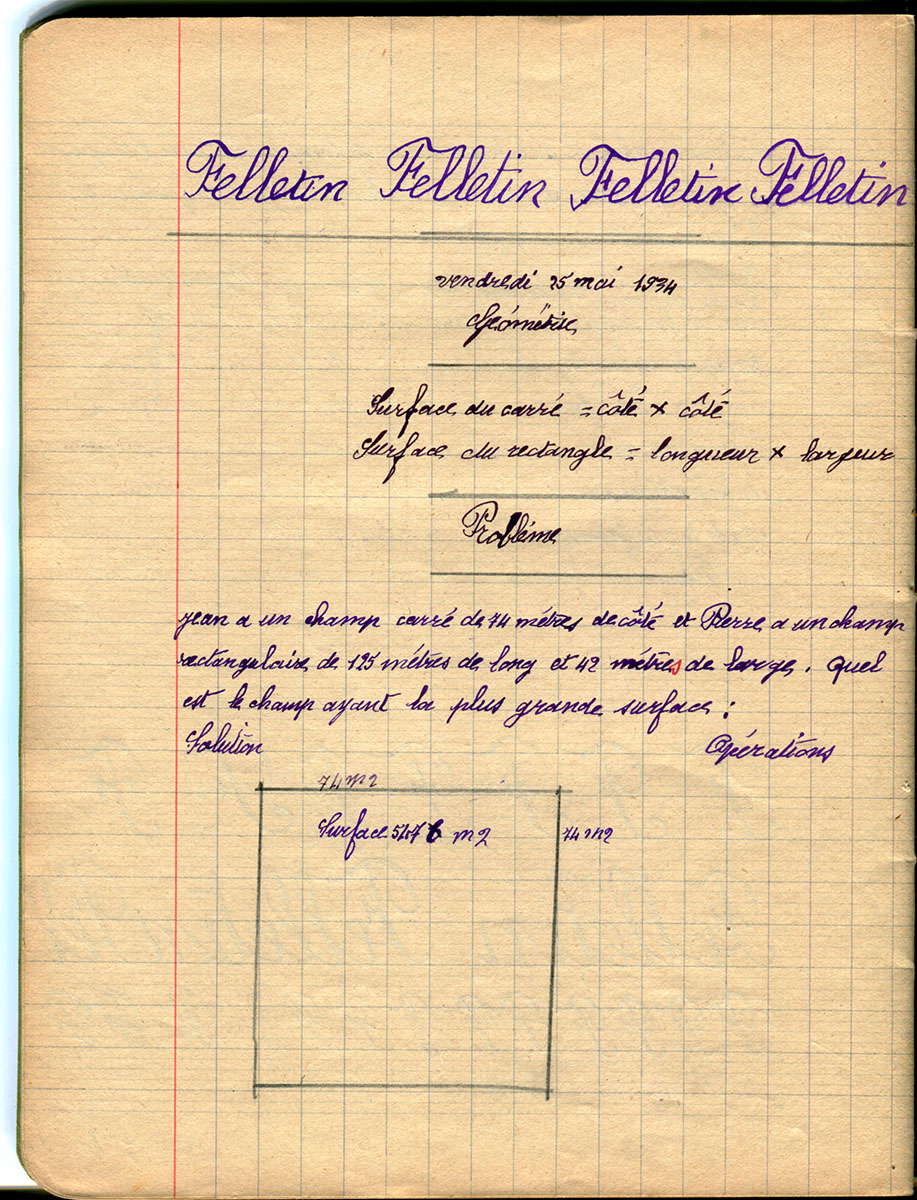 Felletin Felletin Felletin Felletin
vendredi 25 mai 1934
Géométrie
Surface du carré = côté × côté
Surface du rectangle = longueur × largeur
Problème
Jean a un champ carré de 74 mètres de côté et Pierre a un champ
rectangulaire de 125 mètres de long et 42 mètres de large. Quel
est le champ ayant la plus grande surface :
Solution Opérations
74 m2
Surface 5476 m2 74 m2